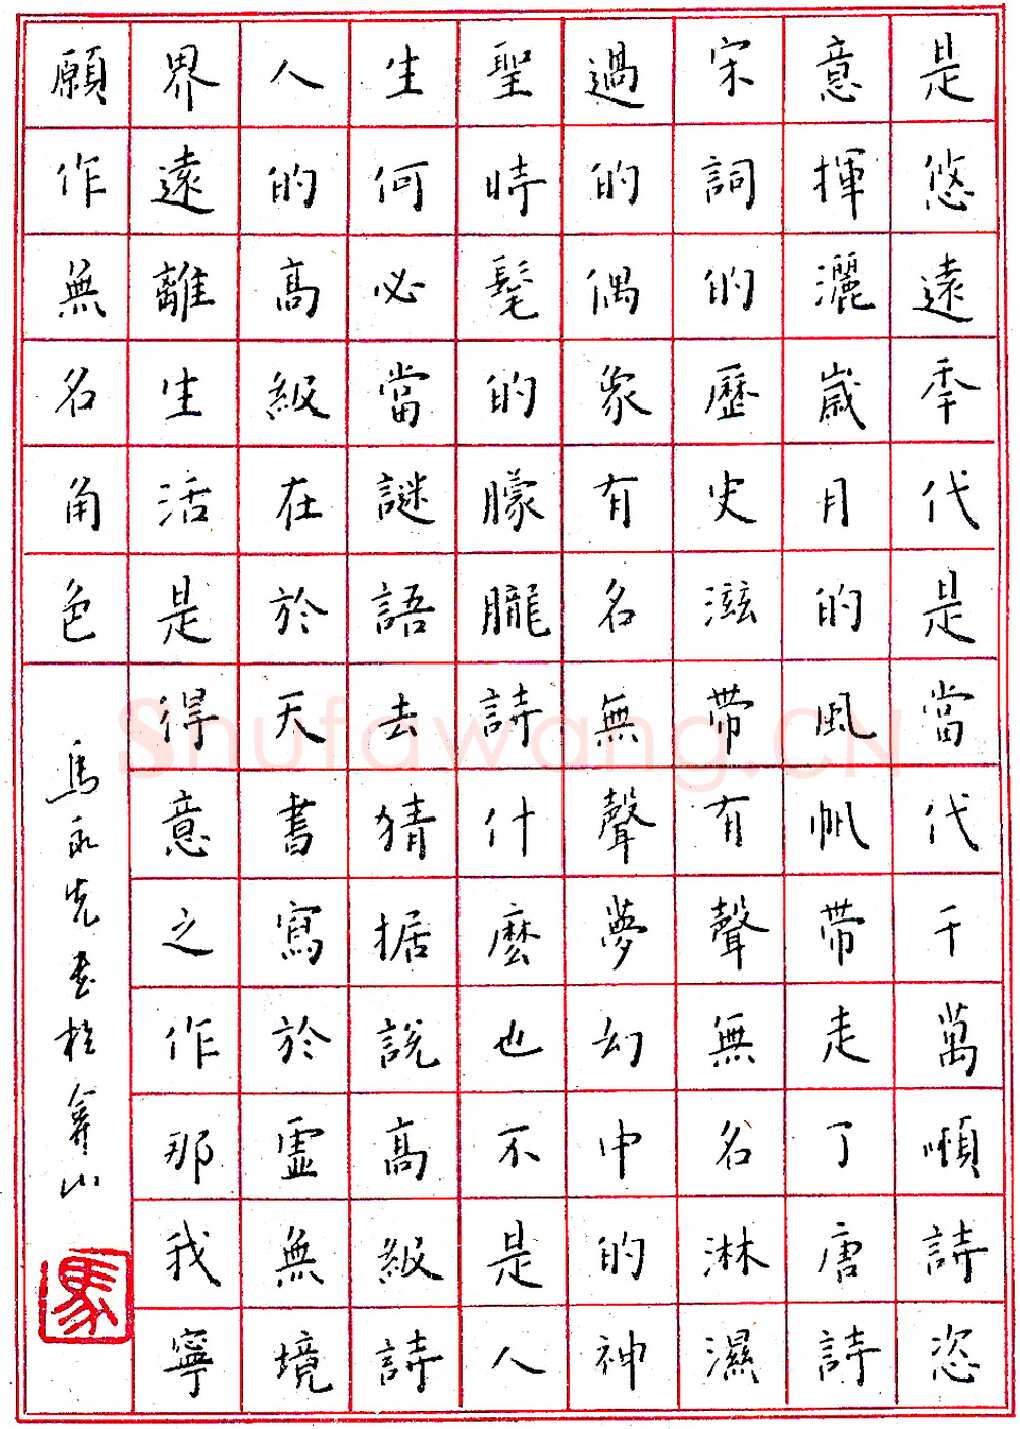 是悠遠秊代是當代千萬順詩恣
意揮灑歲月的風帆帶走了唐詩
宋詞的歷史滋帶有聲無名淋濕
過的偶象有名無聲夢幻中的神
聖時髦的朦朧詩什麼也不是人
生何必當謎語去猜据說高級詩
人的高級在於天書寫於虛無境
界遠離生活是得意之作那我寧
願作無名角色
馬永先書於弇山
馬
Shufawang.CN